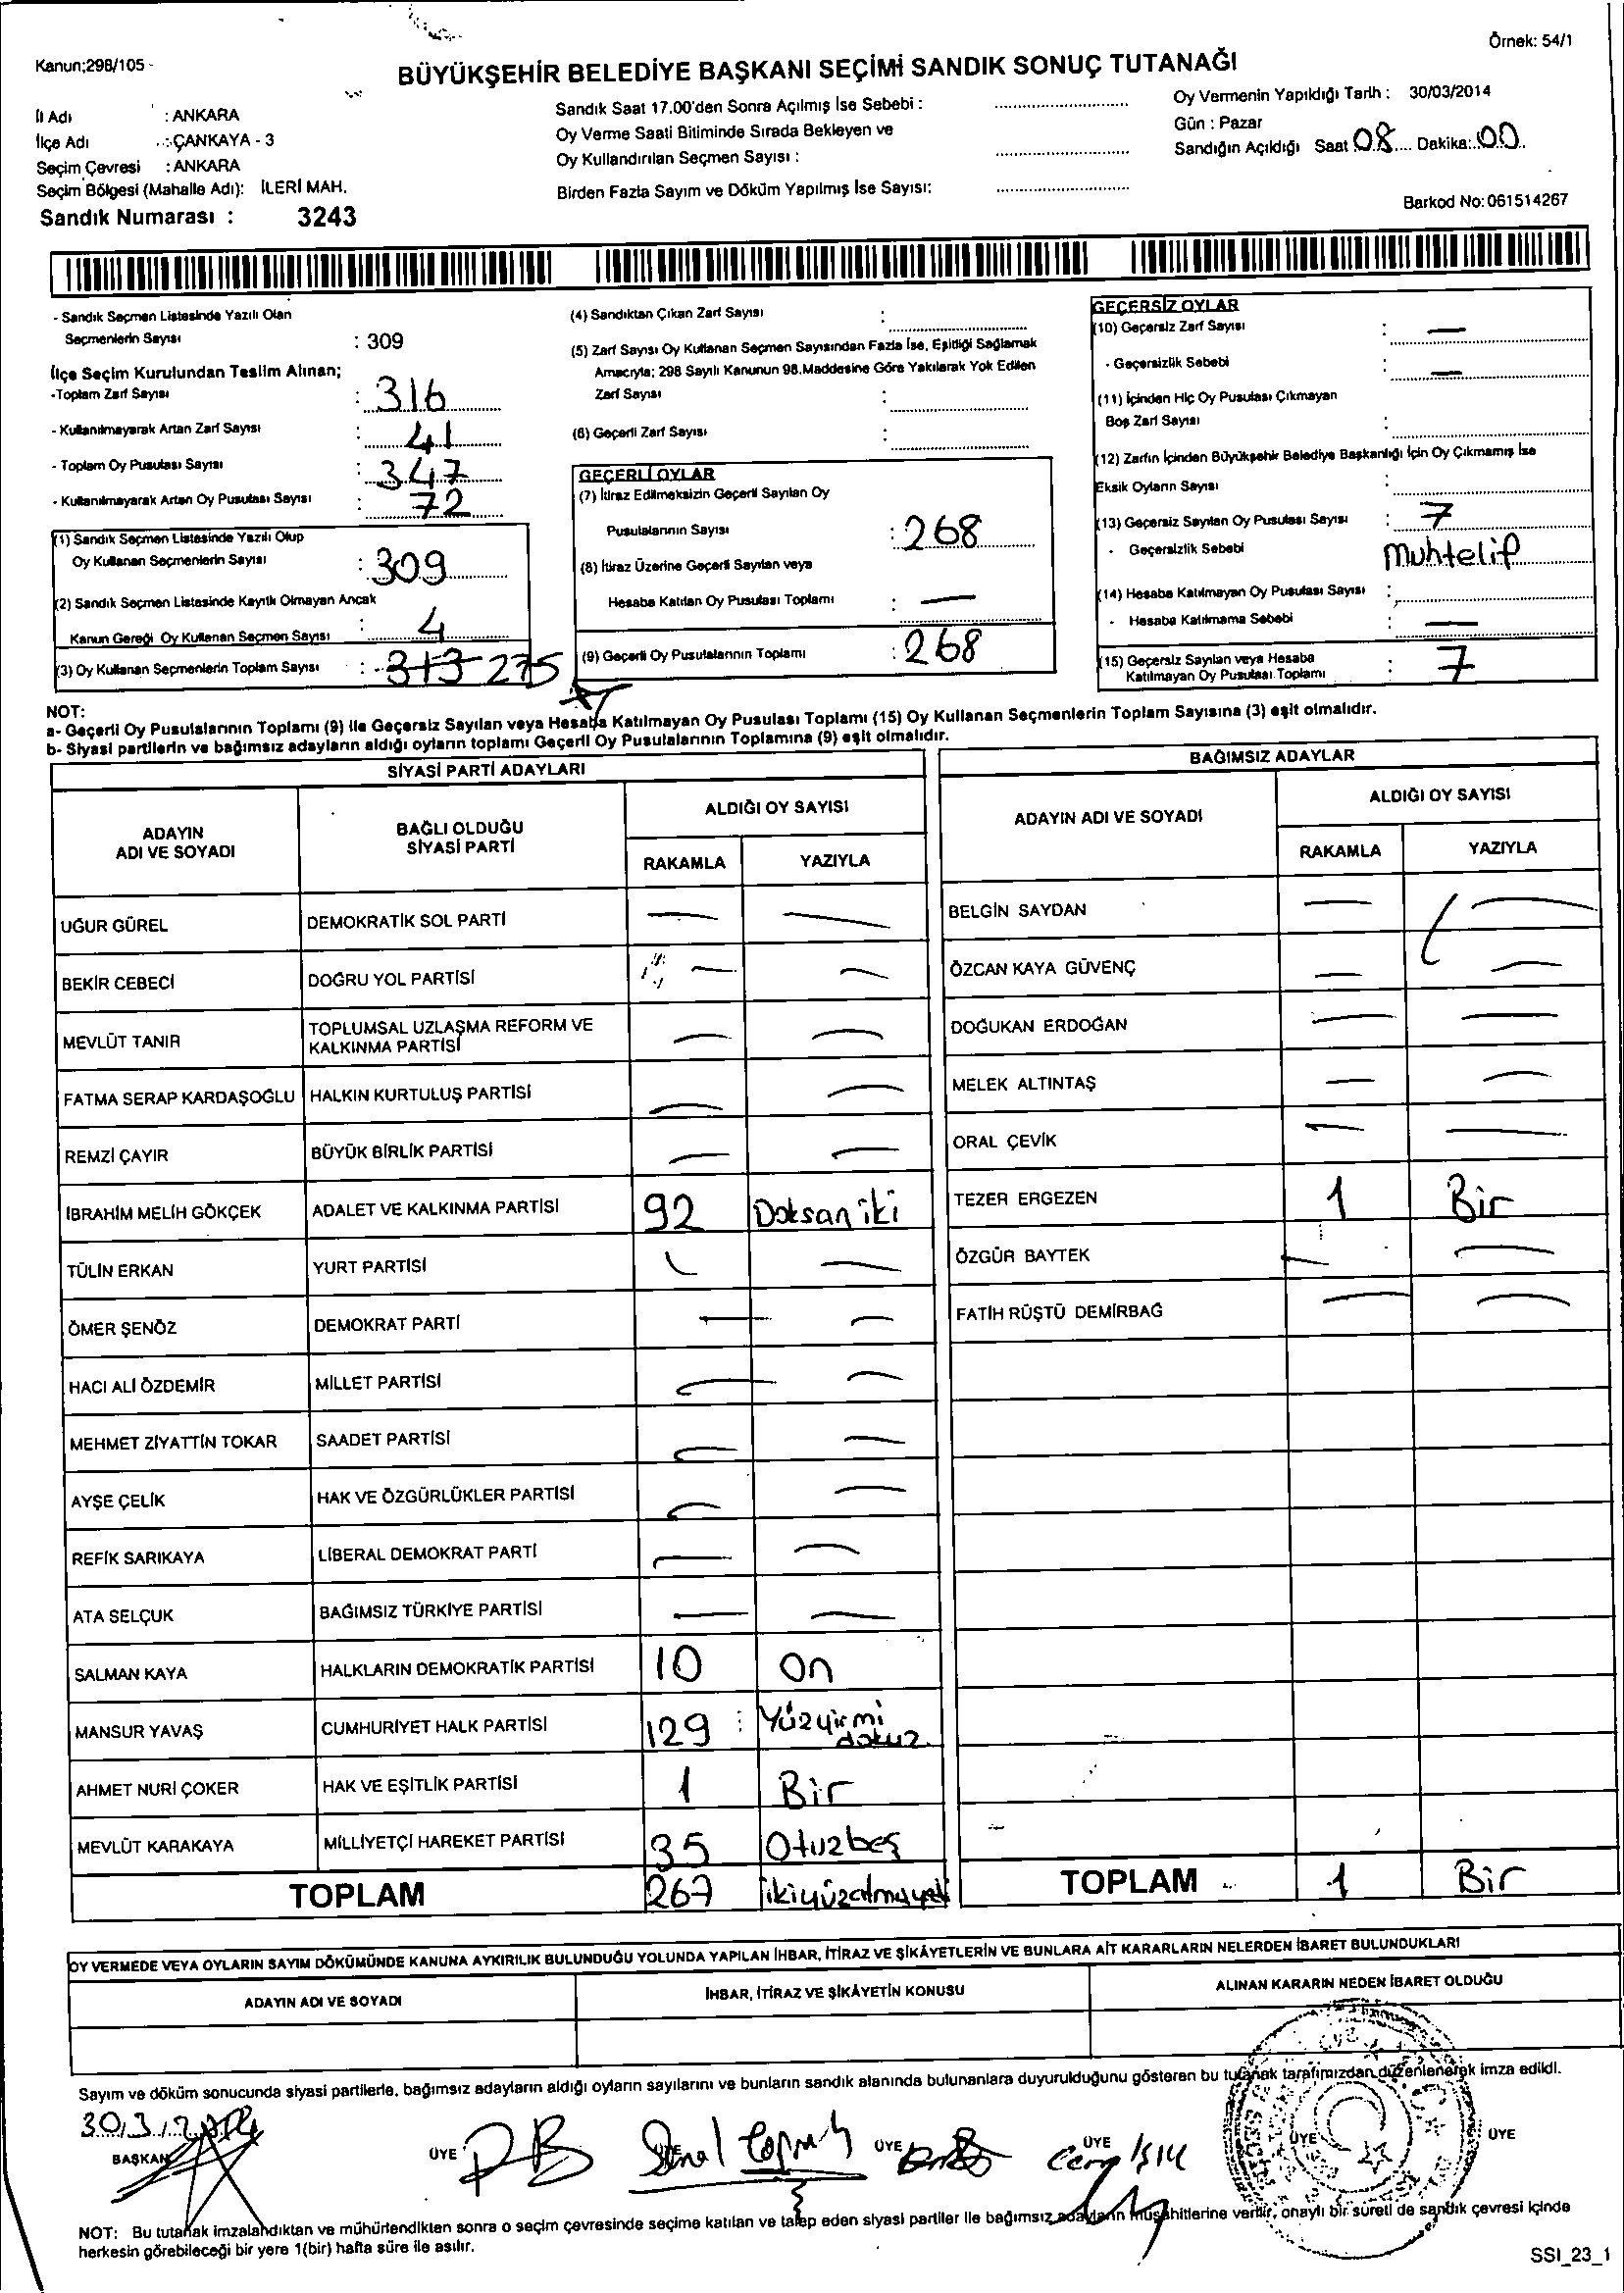 Örnek: 54/1
Kanun;298/105 -
BÜYÜKŞEHİR BELEDİYE BAŞKANI SEÇİMİ SANDIK SONUÇ TUTANAĞI
İl Adı : ANKARA
İlçe Adı : ÇANKAYA - 3
Seçim Çevresi : ANKARA
Seçim Bölgesi (Mahalle Adı): İLERİ MAH.
Sandık Numarası : 3243
Sandık Saat 17.00'den Sonra Açılmış İse Sebebi :
Oy Verme Saati Bitiminde Sırada Bekleyen ve
Oy Kullandırılan Seçmen Sayısı :
Birden Fazla Sayım ve Döküm Yapılmış İse Sayısı:
Oy Vermenin Yapıldığı Tarih : 30/03/2014
Gün : Pazar
Sandığın Açıldığı Saat 08 Dakika: 00
Barkod No: 061514267
- Sandık Seçmen Listesinde Yazılı Olan
Seçmenlerin Sayısı : 309
İlçe Seçim Kurulundan Teslim Alınan;
-Toplam Zarf Sayısı : 316
- Kullanılmayarak Artan Zarf Sayısı : 41
- Toplam Oy Pusulası Sayısı : 347
- Kullanılmayarak Artan Oy Pusulası Sayısı : 72
(1) Sandık Seçmen Listesinde Yazılı Olup
Oy Kullanan Seçmenlerin Sayısı : 309
(2) Sandık Seçmen Listesinde Kayıtlı Olmayan Ancak
Kanun Gereği Oy Kullanan Seçmen Sayısı : 4
(3) Oy Kullanan Seçmenlerin Toplam Sayısı : 313 275
(4) Sandıktan Çıkan Zarf Sayısı :
(5) Zarf Sayısı Oy Kullanan Seçmen Sayısından Fazla İse, Eşitliği Sağlamak
Amacıyla; 298 Sayılı Kanunun 98.Maddesine Göre Yakılarak Yok Edilen
Zarf Sayısı :
(6) Geçerli Zarf Sayısı :
GEÇERLİ OYLAR
(7) İtiraz Edilmeksizin Geçerli Sayılan Oy
Pusulalarının Sayısı : 268
(8) İtiraz Üzerine Geçerli Sayılan veya
Hesaba Katılan Oy Pusulası Toplamı : —
(9) Geçerli Oy Pusulalarının Toplamı : 268
GEÇERSİZ OYLAR
(10) Geçersiz Zarf Sayısı : —
- Geçersizlik Sebebi : —
(11) İçinden Hiç Oy Pusulası Çıkmayan
Boş Zarf Sayısı :
(12) Zarfın İçinden Büyükşehir Belediye Başkanlığı İçin Oy Çıkmamış İse
Eksik Oyların Sayısı :
(13) Geçersiz Sayılan Oy Pusulası Sayısı : 7
- Geçersizlik Sebebi muhtelif
(14) Hesaba Katılmayan Oy Pusulası Sayısı :
- Hesaba Katılmama Sebebi : —
(15) Geçersiz Sayılan veya Hesaba
Katılmayan Oy Pusulası Toplamı : 7
NOT:
a- Geçerli Oy Pusulalarının Toplamı (9) ile Geçersiz Sayılan veya Hesaba Katılmayan Oy Pusulası Toplamı (15) Oy Kullanan Seçmenlerin Toplam Sayısına (3) eşit olmalıdır.
b- Siyasi partilerin ve bağımsız adayların aldığı oyların toplamı Geçerli Oy Pusulalarının Toplamına (9) eşit olmalıdır.
SİYASİ PARTİ ADAYLARI
ADAYIN ADI VE SOYADI BAĞLI OLDUĞU SİYASİ PARTİ ALDIĞI OY SAYISI
RAKAMLA YAZIYLA
UĞUR GÜREL DEMOKRATİK SOL PARTİ — —
BEKİR CEBECİ DOĞRU YOL PARTİSİ — —
MEVLÜT TANIR TOPLUMSAL UZLAŞMA REFORM VE KALKINMA PARTİSİ — —
FATMA SERAP KARDAŞOĞLU HALKIN KURTULUŞ PARTİSİ — —
REMZİ ÇAYIR BÜYÜK BİRLİK PARTİSİ — —
İBRAHİM MELİH GÖKÇEK ADALET VE KALKINMA PARTİSİ 92 Doksan iki
TÜLİN ERKAN YURT PARTİSİ — —
ÖMER ŞENÖZ DEMOKRAT PARTİ — —
HACI ALİ ÖZDEMİR MİLLET PARTİSİ — —
MEHMET ZİYATTİN TOKAR SAADET PARTİSİ — —
AYŞE ÇELİK HAK VE ÖZGÜRLÜKLER PARTİSİ — —
REFİK SARIKAYA LİBERAL DEMOKRAT PARTİ — —
ATA SELÇUK BAĞIMSIZ TÜRKİYE PARTİSİ — —
SALMAN KAYA HALKLARIN DEMOKRATİK PARTİSİ 10 On
MANSUR YAVAŞ CUMHURİYET HALK PARTİSİ 129 Yüzyirmi dokuz
AHMET NURİ ÇOKER HAK VE EŞİTLİK PARTİSİ 1 Bir
MEVLÜT KARAKAYA MİLLİYETÇİ HAREKET PARTİSİ 35 Otuzbeş
TOPLAM 267
BAĞIMSIZ ADAYLAR
ADAYIN ADI VE SOYADI ALDIĞI OY SAYISI
RAKAMLA YAZIYLA
BELGİN SAYDAN — —
ÖZCAN KAYA GÜVENÇ — —
DOĞUKAN ERDOĞAN — —
MELEK ALTINTAŞ — —
ORAL ÇEVİK — —
TEZER ERGEZEN 1 Bir
ÖZGÜR BAYTEK — —
FATİH RÜŞTÜ DEMİRBAĞ — —
TOPLAM 1 Bir
OY VERMEDE VEYA OYLARIN SAYIM DÖKÜMÜNDE KANUNA AYKIRILIK BULUNDUĞU YOLUNDA YAPILAN İHBAR, İTİRAZ VE ŞİKÂYETLERİN VE BUNLARA AİT KARARLARIN NELERDEN İBARET BULUNDUKLARI
ADAYIN ADI VE SOYADI İHBAR, İTİRAZ VE ŞİKÂYETİN KONUSU ALINAN KARARIN NEDEN İBARET OLDUĞU
Sayım ve döküm sonucunda siyasi partilerle, bağımsız adayların aldığı oyların sayılarını ve bunların sandık alanında bulunanlara duyurulduğunu gösteren bu tutanak tarafımızdan düzenlenerek imza edildi.
30/3/2014
BAŞKAN ÜYE ÜYE ÜYE ÜYE ÜYE
NOT: Bu tutanak imzalandıktan ve mühürlendikten sonra o seçim çevresinde seçime katılan ve talep eden siyasi partiler ile bağımsız adayların müşahitlerine verilir, onaylı bir sureti de sandık çevresi içinde
herkesin görebileceği bir yere 1(bir) hafta süre ile asılır.
SSI_23_1